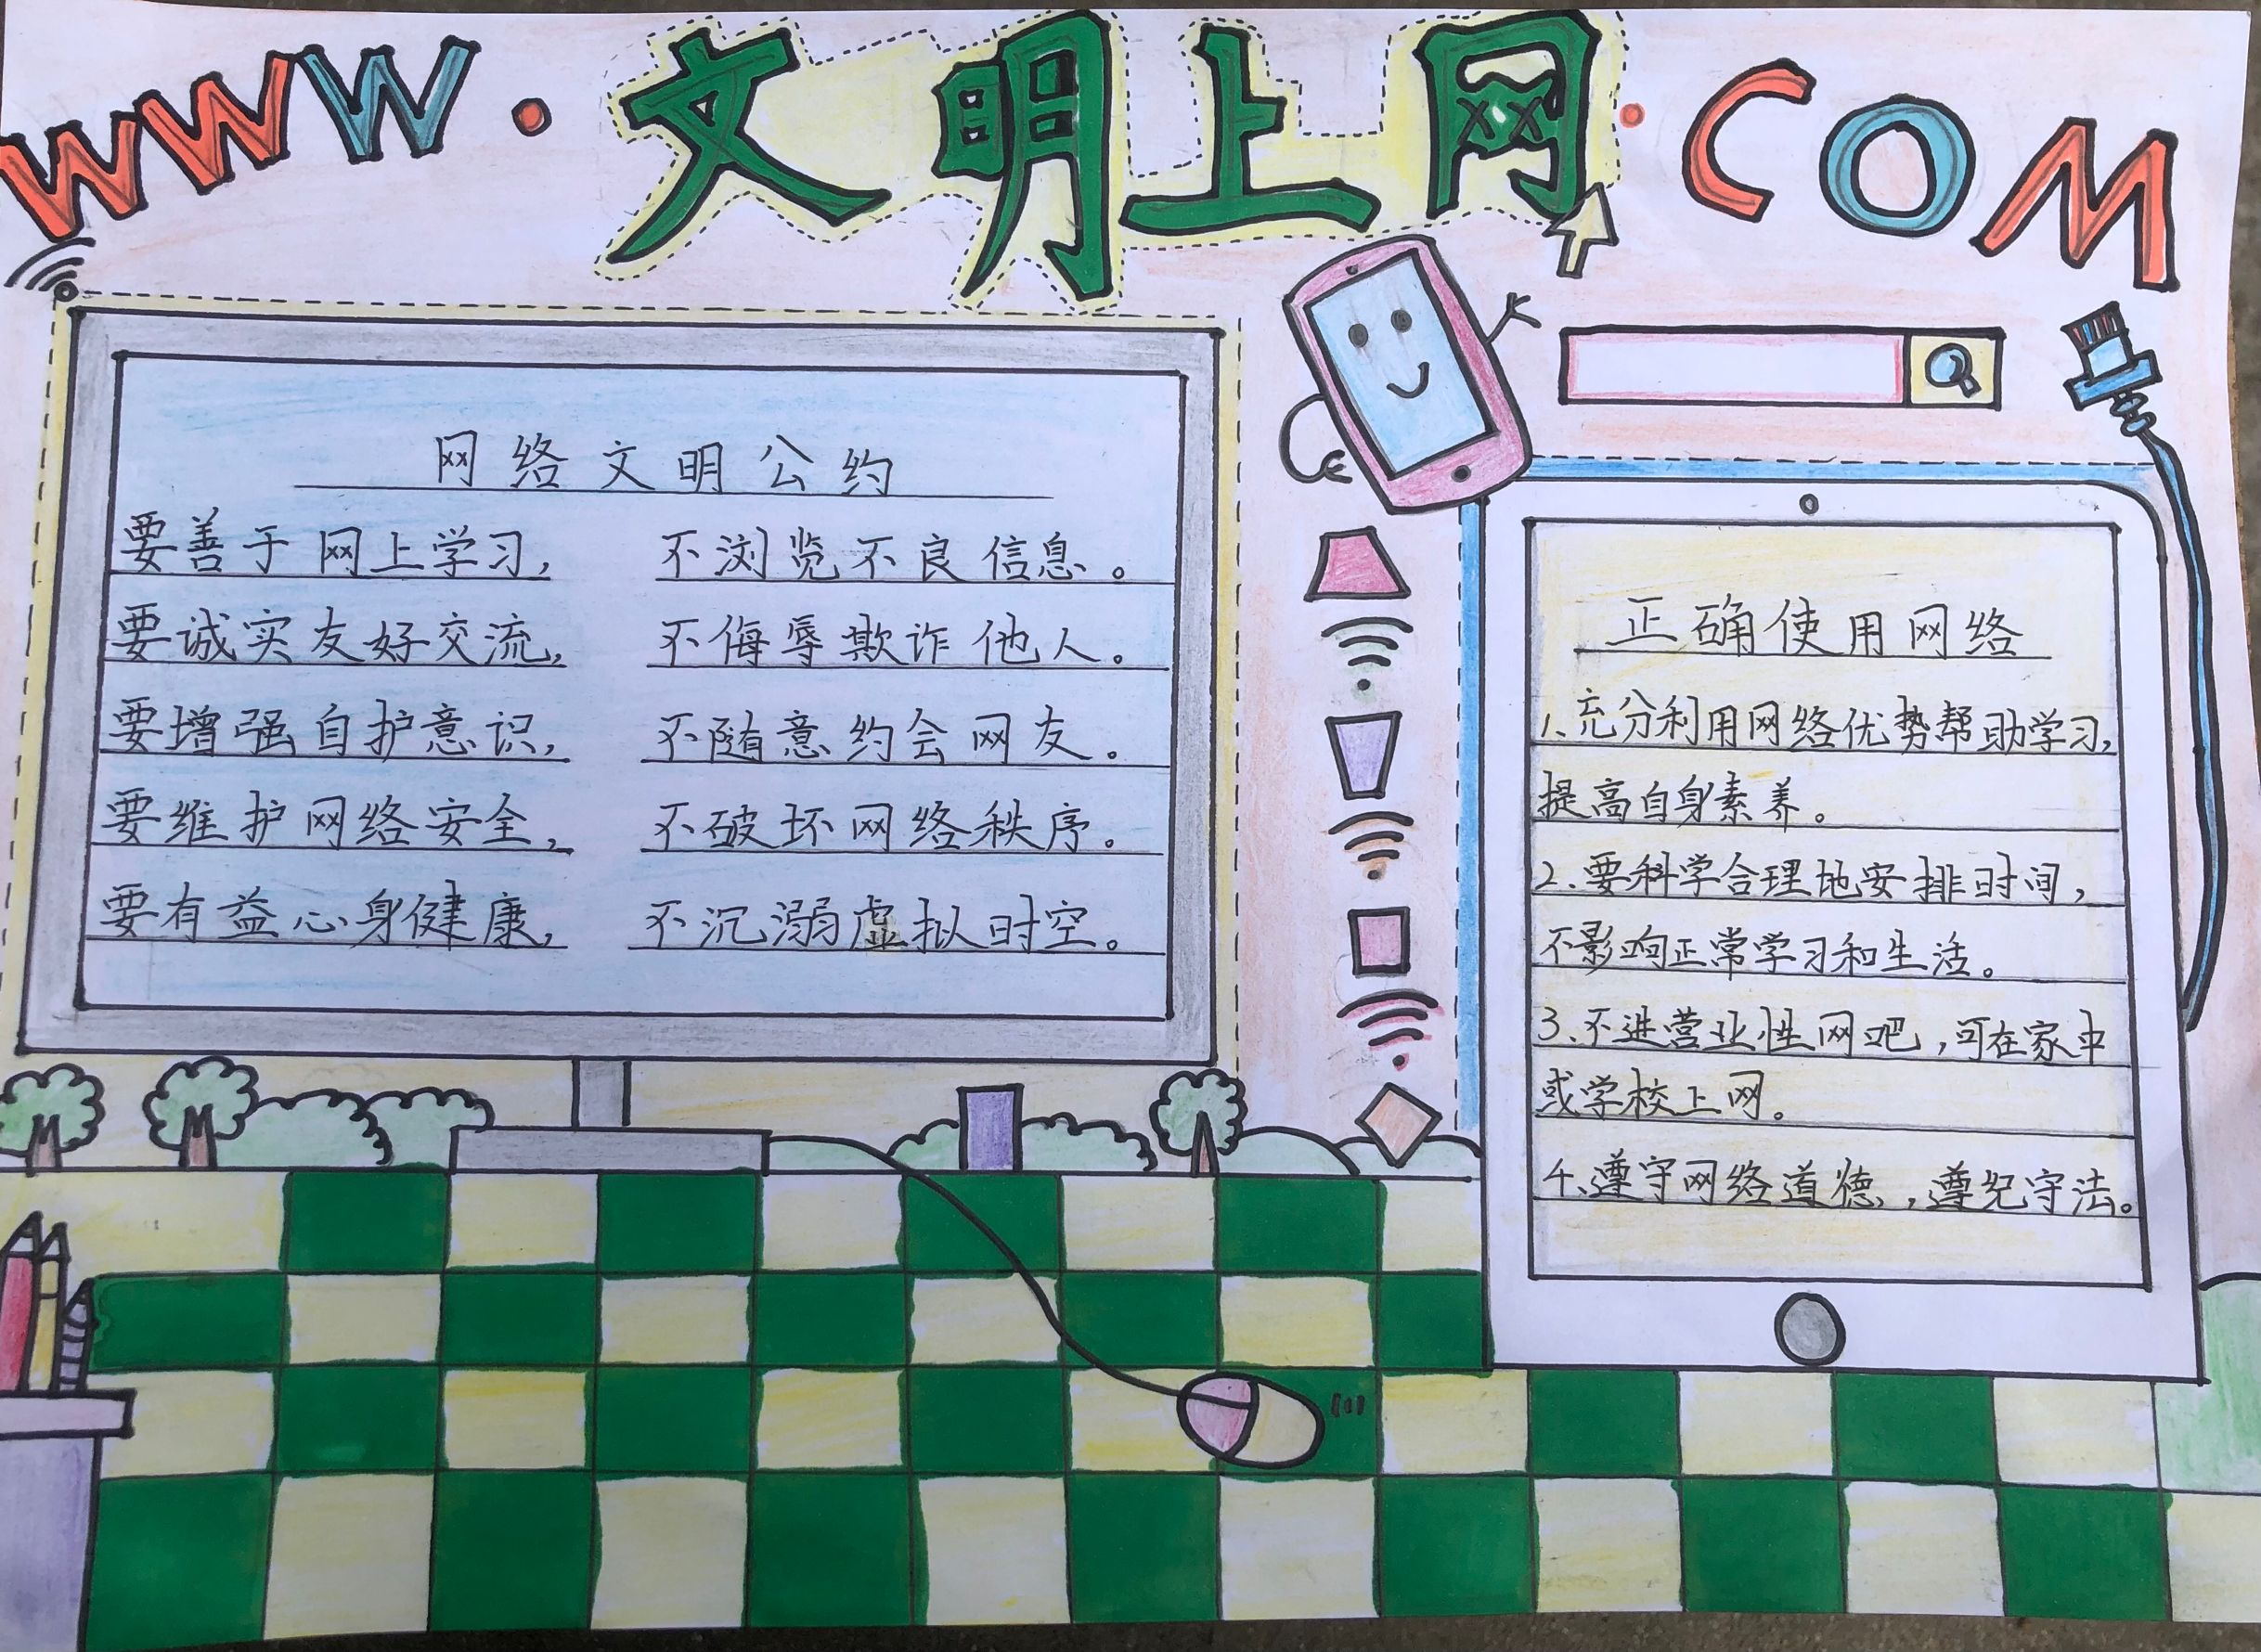 WWW.文明上网.COM
网络文明公约
要善于网上学习, 不浏览不良信息。
要诚实友好交流, 不侮辱欺诈他人。
要增强自护意识, 不随意约会网友。
要维护网络安全, 不破坏网络秩序。
要有益心身健康, 不沉溺虚拟时空。
正确使用网络
1、充分利用网络优势帮助学习,
提高自身素养。
2、要科学合理地安排时间,
不影响正常学习和生活。
3、不进营业性网吧,可在家中
或学校上网。
4、遵守网络道德,遵纪守法。